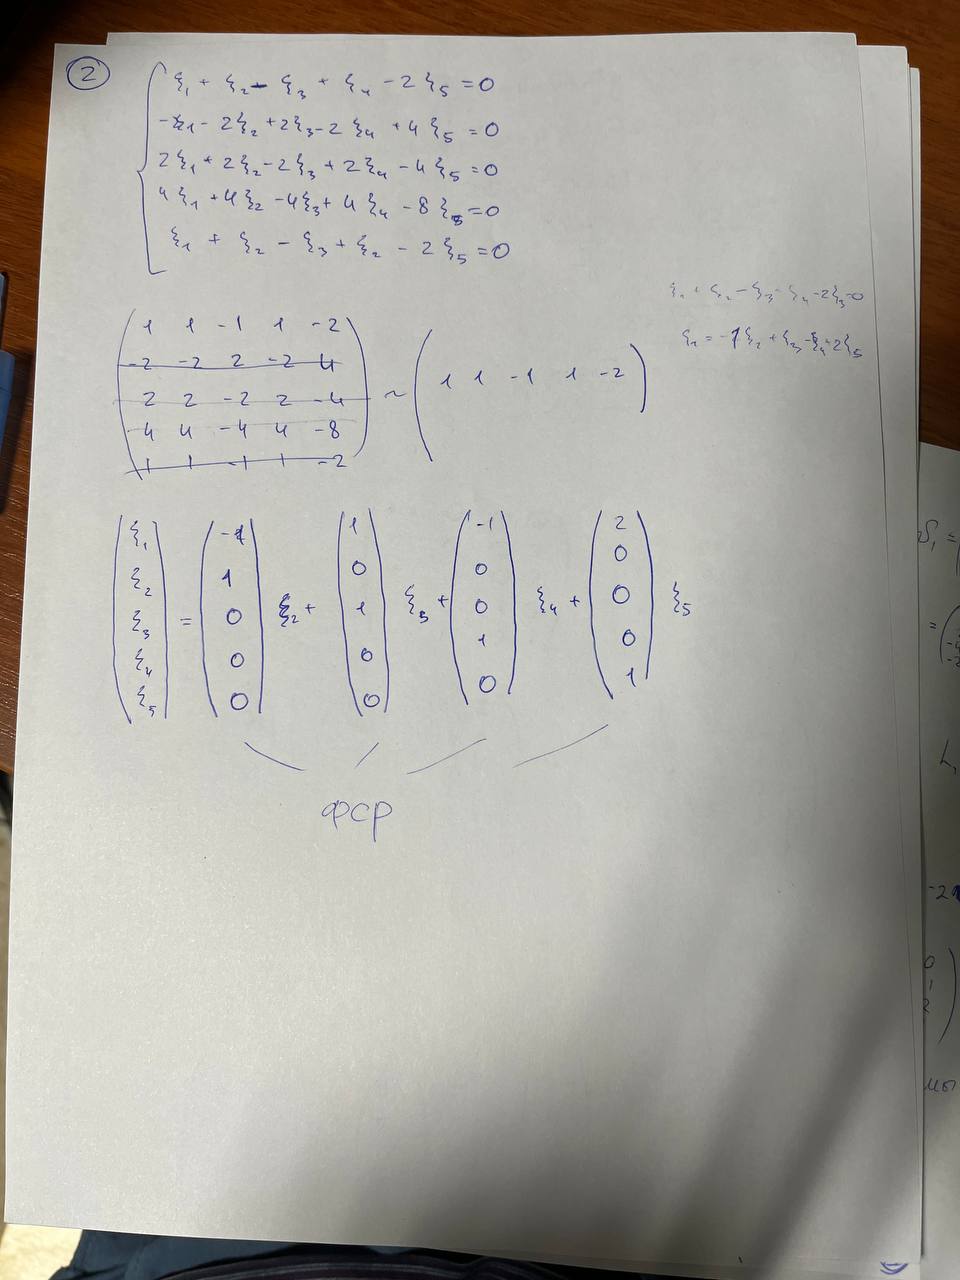 2
ξ₁ + ξ₂ - ξ₃ + ξ₄ - 2ξ₅ = 0
-2ξ₁ - 2ξ₂ + 2ξ₃ - 2ξ₄ + 4ξ₅ = 0
2ξ₁ + 2ξ₂ - 2ξ₃ + 2ξ₄ - 4ξ₅ = 0
4ξ₁ + 4ξ₂ - 4ξ₃ + 4ξ₄ - 8ξ₅ = 0
ξ₁ + ξ₂ - ξ₃ + ξ₂ - 2ξ₅ = 0
ξ₁ + ξ₂ - ξ₃ - ξ₄ - 2ξ₅ = 0
ξ₁ = -1ξ₂ + ξ₃ - ξ₄ + 2ξ₅
1 1 -1 1 -2
-2 -2 2 -2 4
2 2 -2 2 -4 ~ ( 1 1 -1 1 -2 )
4 4 -4 4 -8
1 1 -1 1 -2
ξ₁ -1 1 -1 2
ξ₂ 1 0 0 0
ξ₃ = 0 ξ₂ + 1 ξ₃ + 0 ξ₄ + 0 ξ₅
ξ₄ 0 0 1 0
ξ₅ 0 0 0 1
ФСР